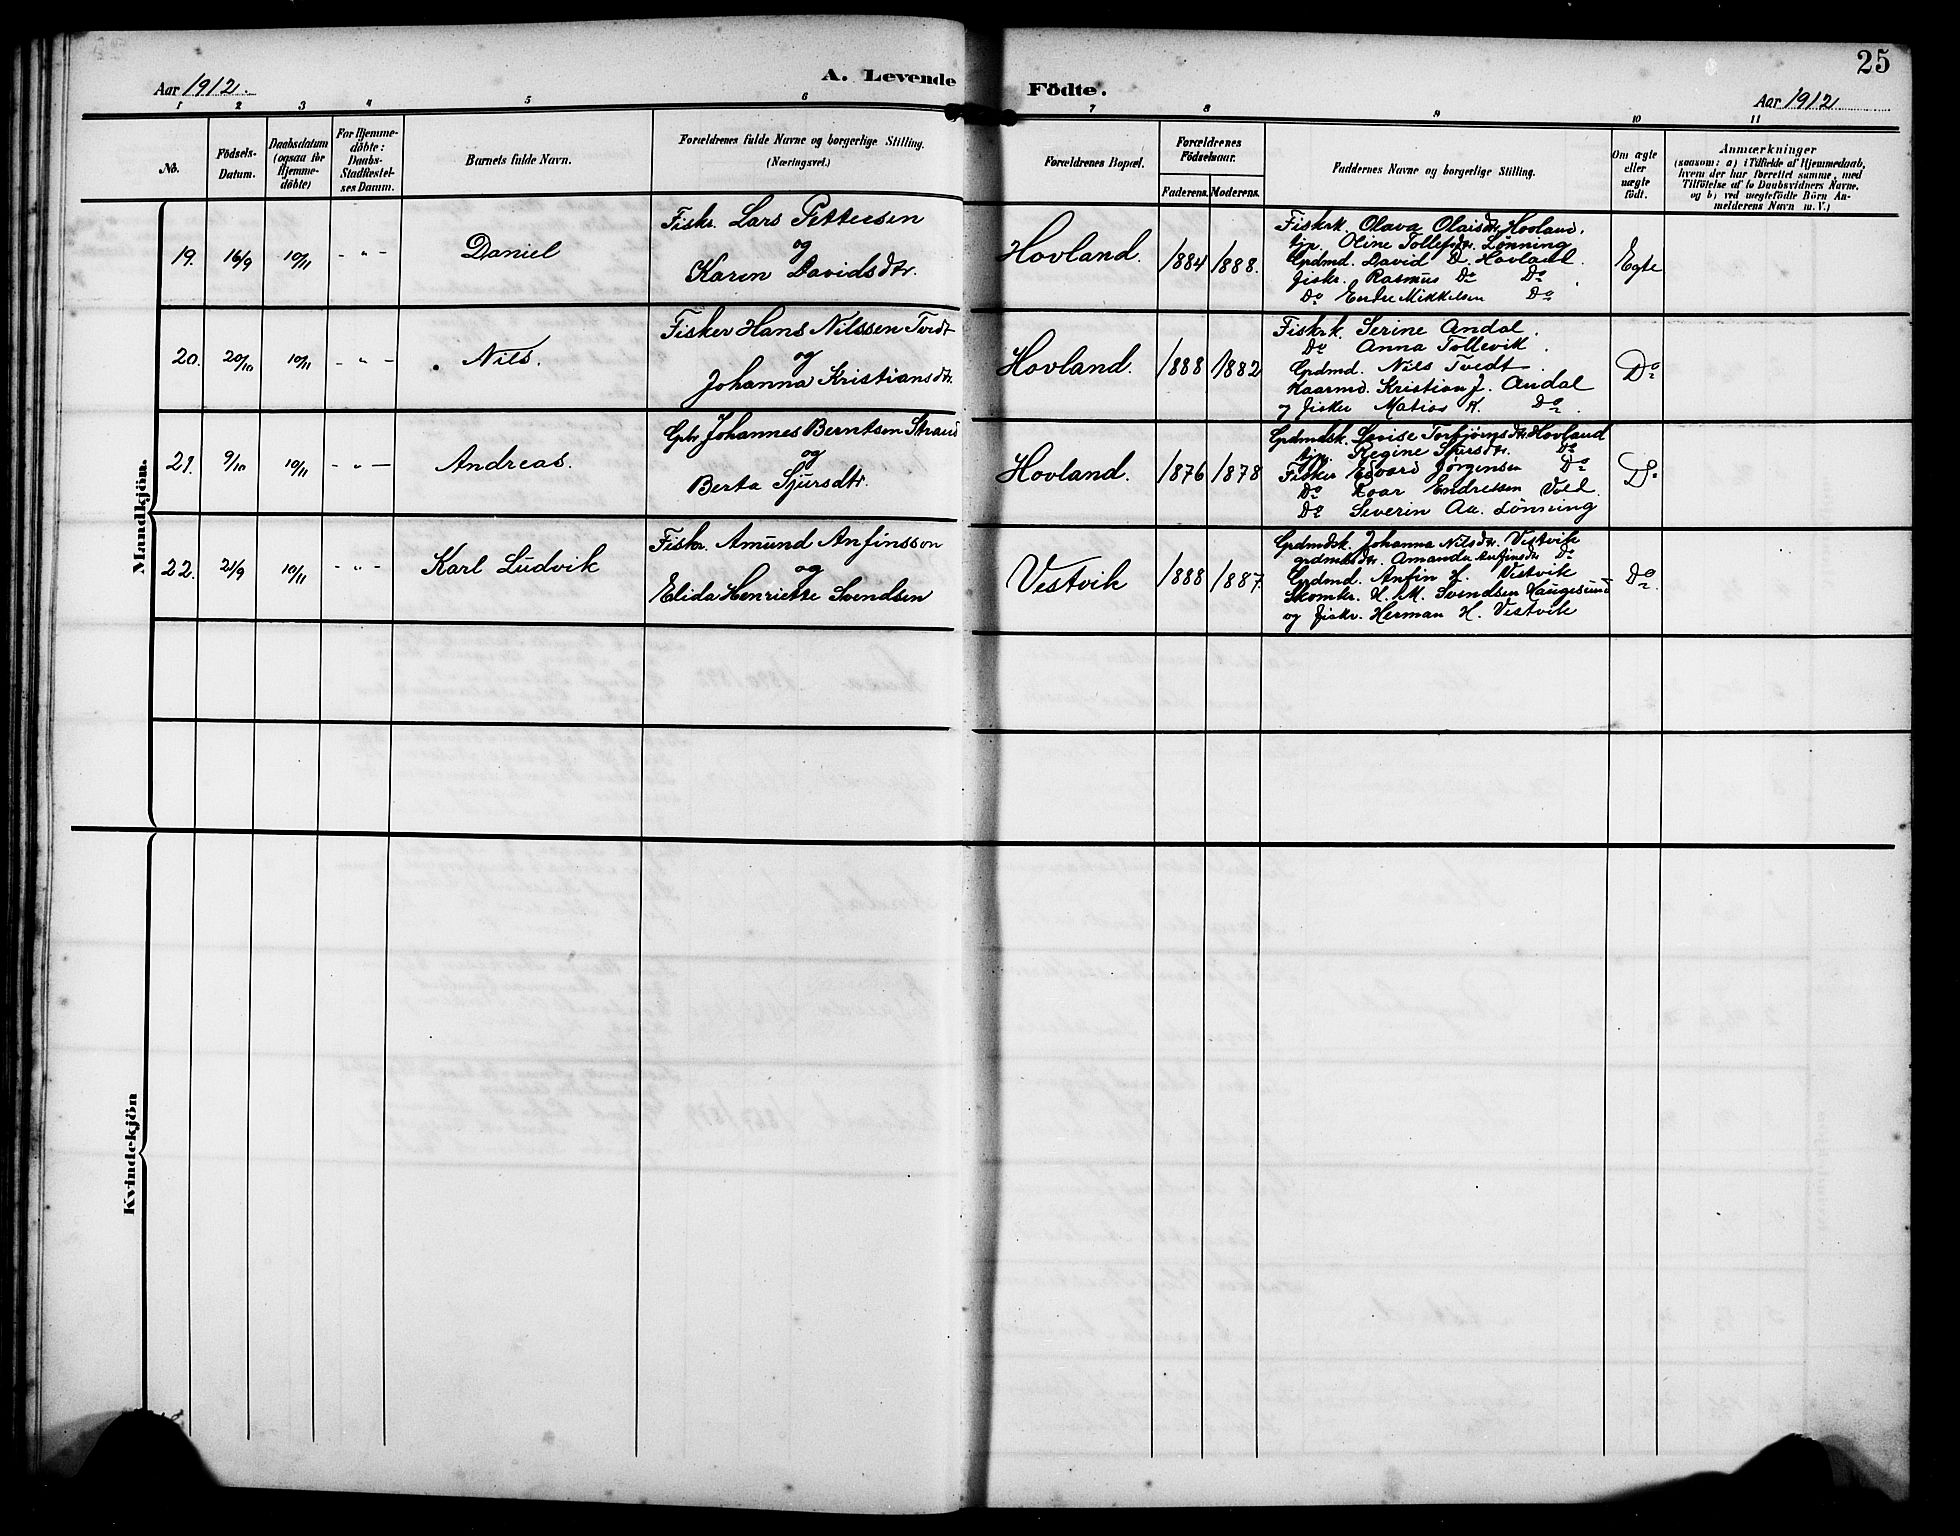 25
Aar 1912.
A. Levende Födte.
Aar 1912
1 2 3 4 5 6 7 8 9 10 11
No.
Födsels-Datum.
Daabsdatum (ogsaa for Hjemme-döbte)
For Hjemme-döbte: Daabs-Stadfæstel-ses Datum.
Barnets fulde Navn.
Forældrenes fulde Navne og borgerlige Stilling.
(Næringsvei.)
Forældrenes Bopæl.
Forældrenes Födselsaar.
Faderens. Moderens.
Faddernes Navne og borgerlige Stilling.
Om ægte eller uægte födt.
Anmærkninger
(saasom: a) i Tilfælde af Hjemmedaab,
hvem der har forrettet samme, med
Tilföielse af to Daabsvidners Navne,
og b) ved uægtefödte Börn An-
melderens Navn m. V.)
Mandkjön.
19. 16/9 10/11 - " - Daniel
Fiskr. Lars Pettersen
og
Karen Davidsdtr.
Hovland. 1884 1888.
Fiskrk. Olava Olaisdtr. Hovland.
tjp. Oline Tollefsdtr. Lønning
Grdmd. David D. Hovland.
fiskr. Rasmus Do Do
Do Endre Mikkelsen Do
Egte
20. 20/10 10/11 - " - Nils.
Fisker Hans Nilssen Tvedt
og
Johanna Kristiansdtr.
Hovland. 1888 1882
Fiskrk. Serine Andal.
Do Anna Tollevik.
Grdmd. Nils Tvedt.
Kaarmd. Kristian J. Andal
og fisker Matias K. Do.
Do
21. 9/10 10/11 - " - Andreas.
Gbr. Johannes Berntsen Strand
og
Berta Sjursdtr.
Hovland. 1876 1878
Grdmdsk. Lovise Torbjørnsdtr. Hovland
tjp. Regine Sjursdtr. Do
Fisker Edvard Jørgensen Do
Do Roar Endresen Vold.
Do Severin Aa. Lønning
Do
22. 21/9 10/11 - " - Karl Ludvik
Fiskr. Amund Anfinsson
og
Elida Henriette Svendsen
Vestvik 1888 1887
Grdmdsk. Johanna Nilsdtr. Vestvik
grdmdsdtr. Amanda Anfinsdtr Do
Grdmd. Anfin H. Vestvik
Skomkr. H. M. Svendsen Haugesund
og fiskr. Herman H. Vestvik
Do.
Kvindekjön